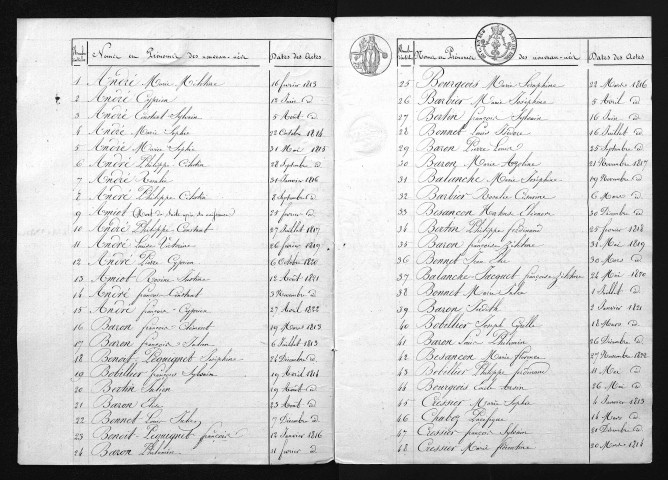 Noms et Prénoms des nouveaux-nés Dates des Actes
1 André Marie 16 février 1813
2 André Cyprien 13 Juin d
3 André Constant Sylvain 5 Août d
4 André Marie Sophie 22 Octobre 1814
5 André Marie Sophie 31 Mai 1815
6 André Philippe Célestin 28 Septembre d
7 André Rosalie 31 Janvier 1816
8 André Philippe Célestin 2 Septembre d
9 Amiot (Mort de suite après sa naissance) 21 février d
10 André Philippe Constant 27 Juillet 1817
11 André Louise Victorine 26 février 1819
12 André Pierre Cyprien 6 Octobre 1820
13 Amiot Justine 12 Août 1821
14 André françois Constant 3 Novembre d
15 André françois Cyprien 27 Avril 1822
16 Baron françois Clément 19 Mars 1813
17 Baron françois Julien 6 Juillet 1813
18 Benoit Léguignet Séraphine 24 Décembre d
19 Bobillier françois Sylvain 19 Avril 1814
20 Bertin Julien 19 Août d
21 Baron 23 Août d
22 Bonnet Louis 7 Décembre d
23 Benoit Léguignet françois 12 Janvier 1816
24 Baron Philémin 11 février d
Noms et Prénoms des nouveaux-nés Dates des Actes
25 Bourgeois Marie Séraphine 22 Mars 1816
26 Barbier Marie Joséphine 5 Avril d
27 Bertin françois Sylvain 16 Juin d
28 Bonnet Louis 16 Juillet d
29 Baron Pierre Louis 25 Septembre d
30 Baron Marie 21 Novembre 1817
31 Balanche Marie Joséphine 19 Novembre d
32 Barbier Rosalie 6 Mars d
33 Besançon 30 Décembre d
34 Bertin Philippe ferdinand 25 février 1818
35 Baron françoise 31 Mai 1819
36 Bonnet 30 Mars d
37 Balanche Jacquet françoise 24 Mai 1820
38 Bonnet Marie Julie 1 Juillet d
39 Baron Judith 2 Janvier 1821
40 Bobillier Joseph 18 Mars d
41 Baron Louis Philémin 26 Décembre d
42 Besançon Marie 27 Novembre 1822
43 Bobillier Philippe ferdinand 11 Mai d
44 Bourgeois 26 Mai d
45 Cressier Marie Sophie 4 Janvier 1813
46 Chaboz 14 Mars d
47 Cressier françois Sylvain 21 Décembre d
48 Cressier Marie florentine 20 Mars 1814